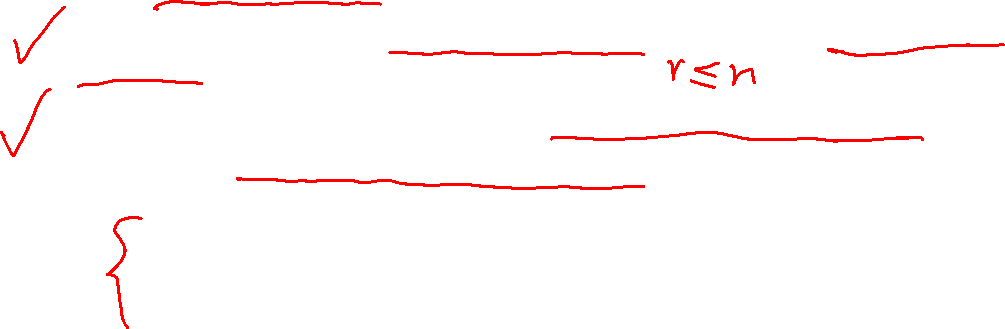 r ≤ n